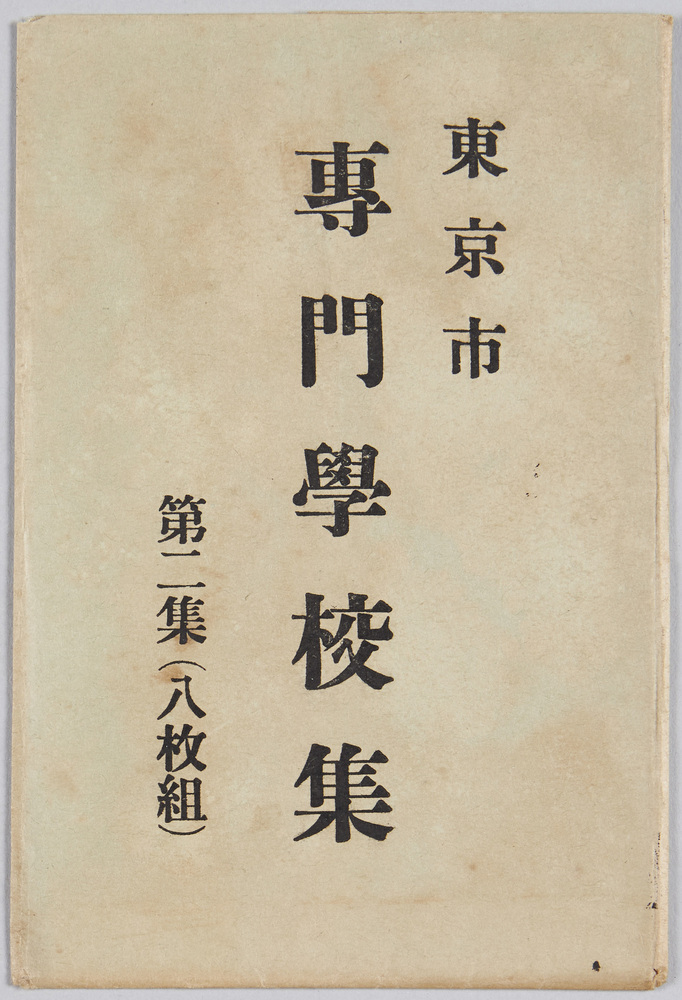 東京市
專門學校集
第二集（八枚組）